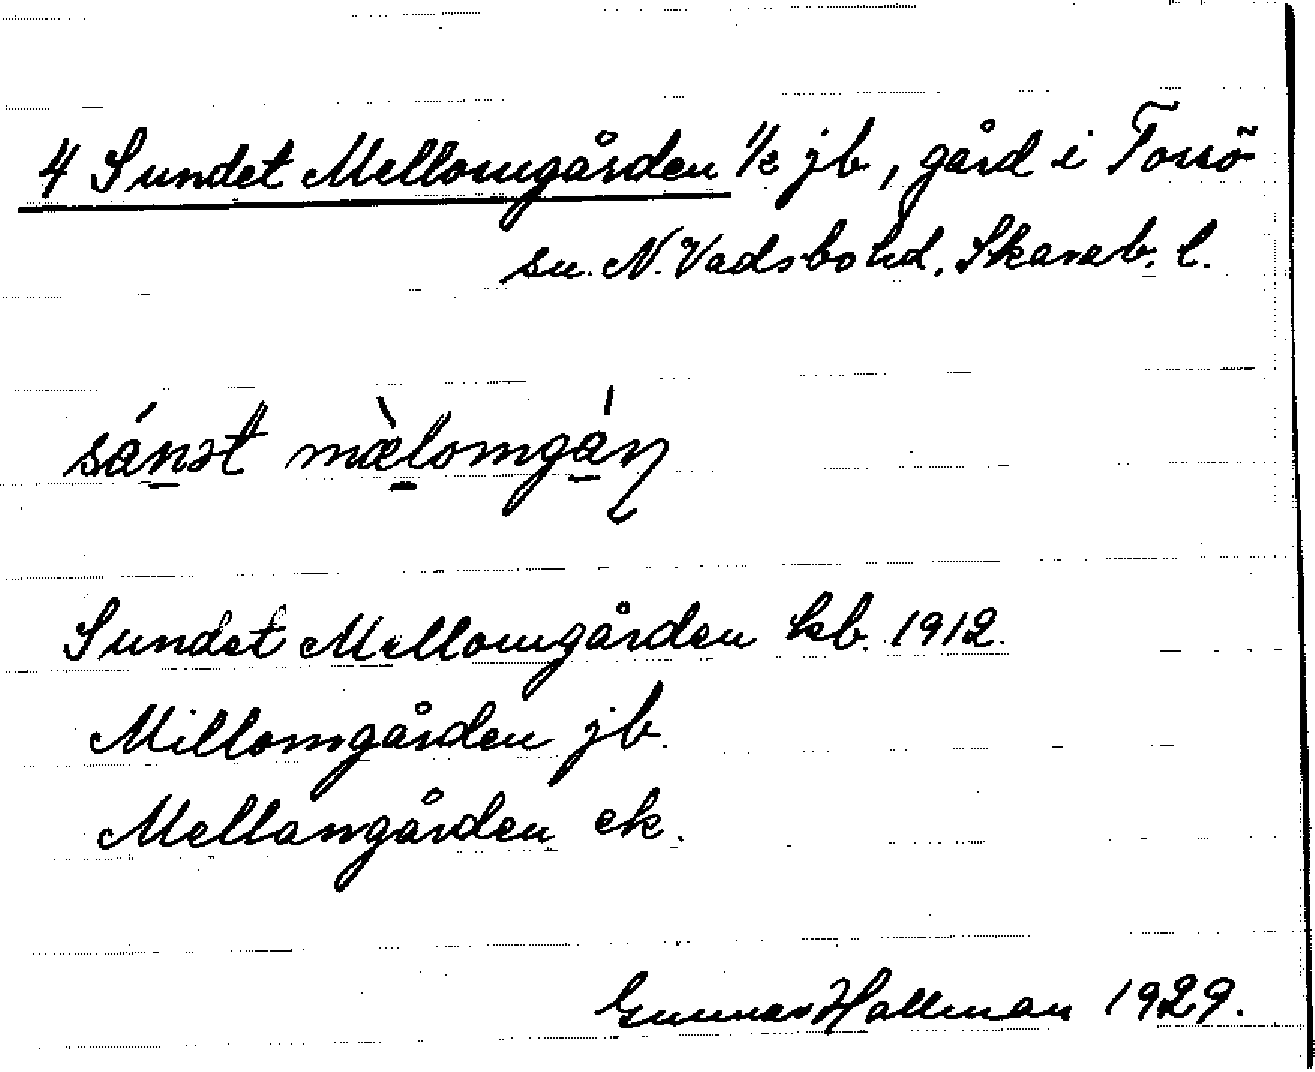 4 Sundet Mellomgården 1/2 jb, gård i Torsö
sn. N. Vadsbo hd. Skarab. l.
sánət mæ̀lomgán
Sundet Mellomgården kb. 1912.
Millomgården jb.
Mellangården ek.
Gunnar Hallman 1929.